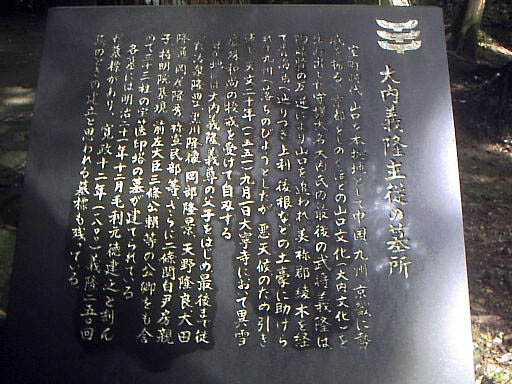 大内義隆主従の墓所
室町時代 山口を本拠地として中国 九州 京畿に勢
威を振るい 京都をしのぐほどの山口文化(大内文化)を
生み出した守護大名大内氏の最後の武将義隆は
の反逆により山口を追われ 美祢郡綾木を経
て 上利 後根などの土豪に助けら
れ 九州へ落ちのびようとしたが 悪天候のため引き
返し 天文二十年(一五五一)九月一日大寧寺において異雪
慶殊和尚の教戒を受けて自刃する
当地には大内義隆 義尊の父子をはじめ最後まで従
った 黒川隆像 岡部隆景 天野隆良 大田
隆通 岡屋隆秀 祢宜民部等 さらに二条関白尹房 親
子 持明院基規 前左大臣三条公頼等の公卿をも含
めて三十三柱の宝篋印塔の墓が建てられている
各墓には明治三十一年十二月毛利元徳建之と刻ん
だ墓標があり 寛政十二年(一八〇〇)義隆二五〇回
忌のときの建立と思われる墓標も残っている。